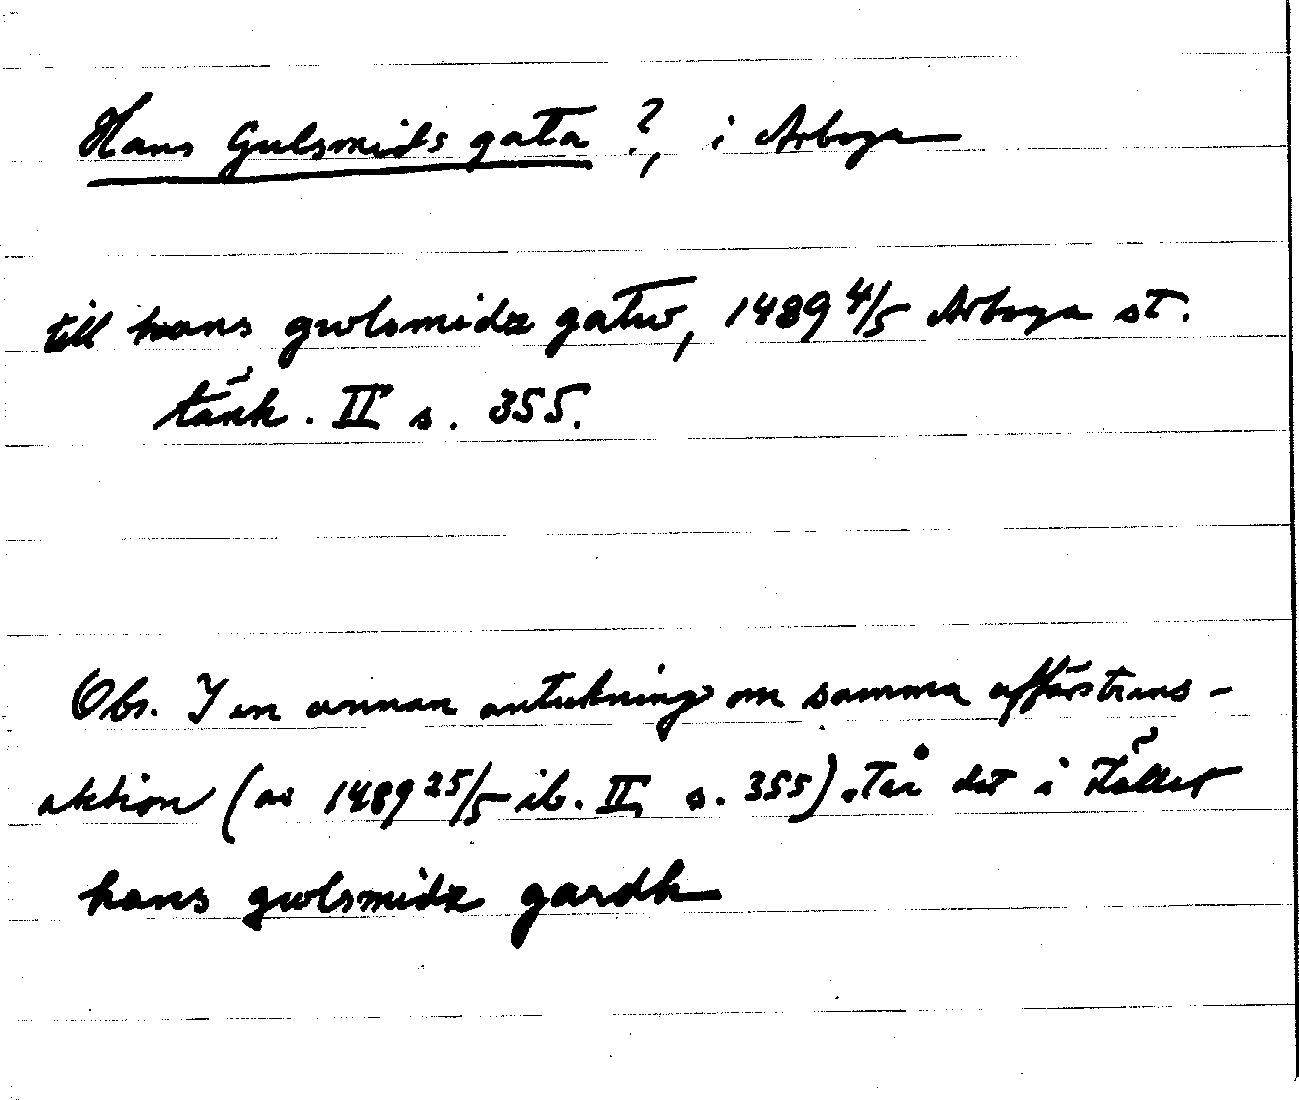 Hans Gulsmids gata ?, i Arboga
till hans gwlsmidz gatw, 1489 4/5 Arboga st.
tänk. II s. 355.
Obs. I en annan anteckning om samma affärstrans-
aktion (av 1489 25/5 ib. II, s. 355) står det i stället
hans gwlsmidz gardh